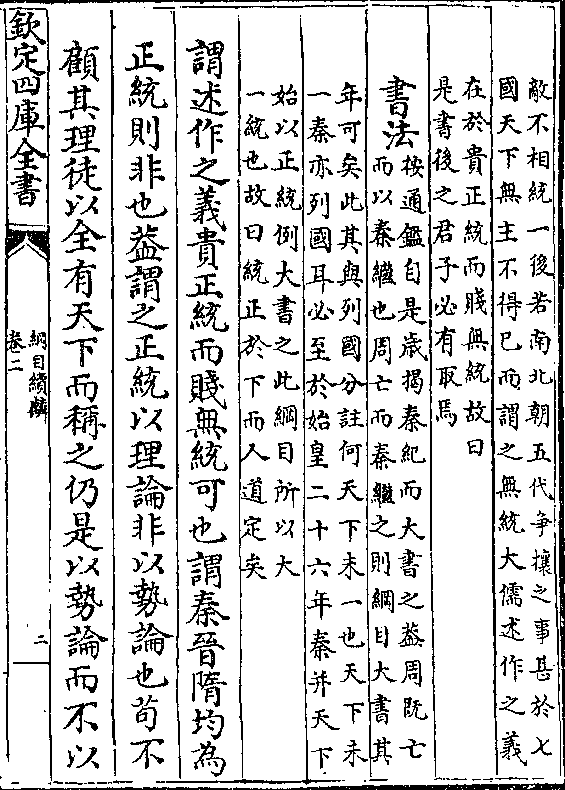 敵不相統一後若南北朝五代争攘之事甚於七
國天下無主不得已而謂之無統大儒述作之義
在於貴正統而賤無統故曰
是書後之君子必有取焉
書法
按通鑑自是歳揭秦紀而大書之葢周既亡
而以秦繼也周亡而秦繼之則綱目大書其
年可矣此其與列國分註何天下未一也天下未
一秦亦列國耳必至於始皇二十六年秦并天下
始以正統例大書之此綱目所以大
一統也故曰統正於下而人道定矣
謂述作之義貴正統而賤無統可也謂秦晉隋均為
正統則非也葢謂之正統以理論非以勢論也茍不
顧其理徒以全有天下而稱之仍是以勢論而不以
欽定四庫全書
綱目續麟
卷二
二